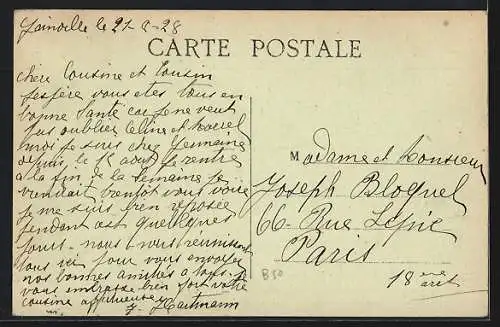 Joinville le 21-8-28
CARTE POSTALE
Chère Cousine et Cousin
J'espère vous etes tous en
bonne Santé car je ne veut
pas oublier Céline et Marcel
moi je suis chez Germaine
depuis le 12 aout je rentre
a la fin de la Semaine je
viendrait bientot vous voir
je me suis bien reposée
pendant est quelques
jours - nous nous réunissons
tous ici pour vous envoyer
nos bonnes amitiés a tous. Je
vous embrasse bien fort votre
cousine affectueuse
J. Hartmann
Madame et Monsieur
Joseph Bloquel
66 - Rue Lepic
Paris
18 eme arct.
B50